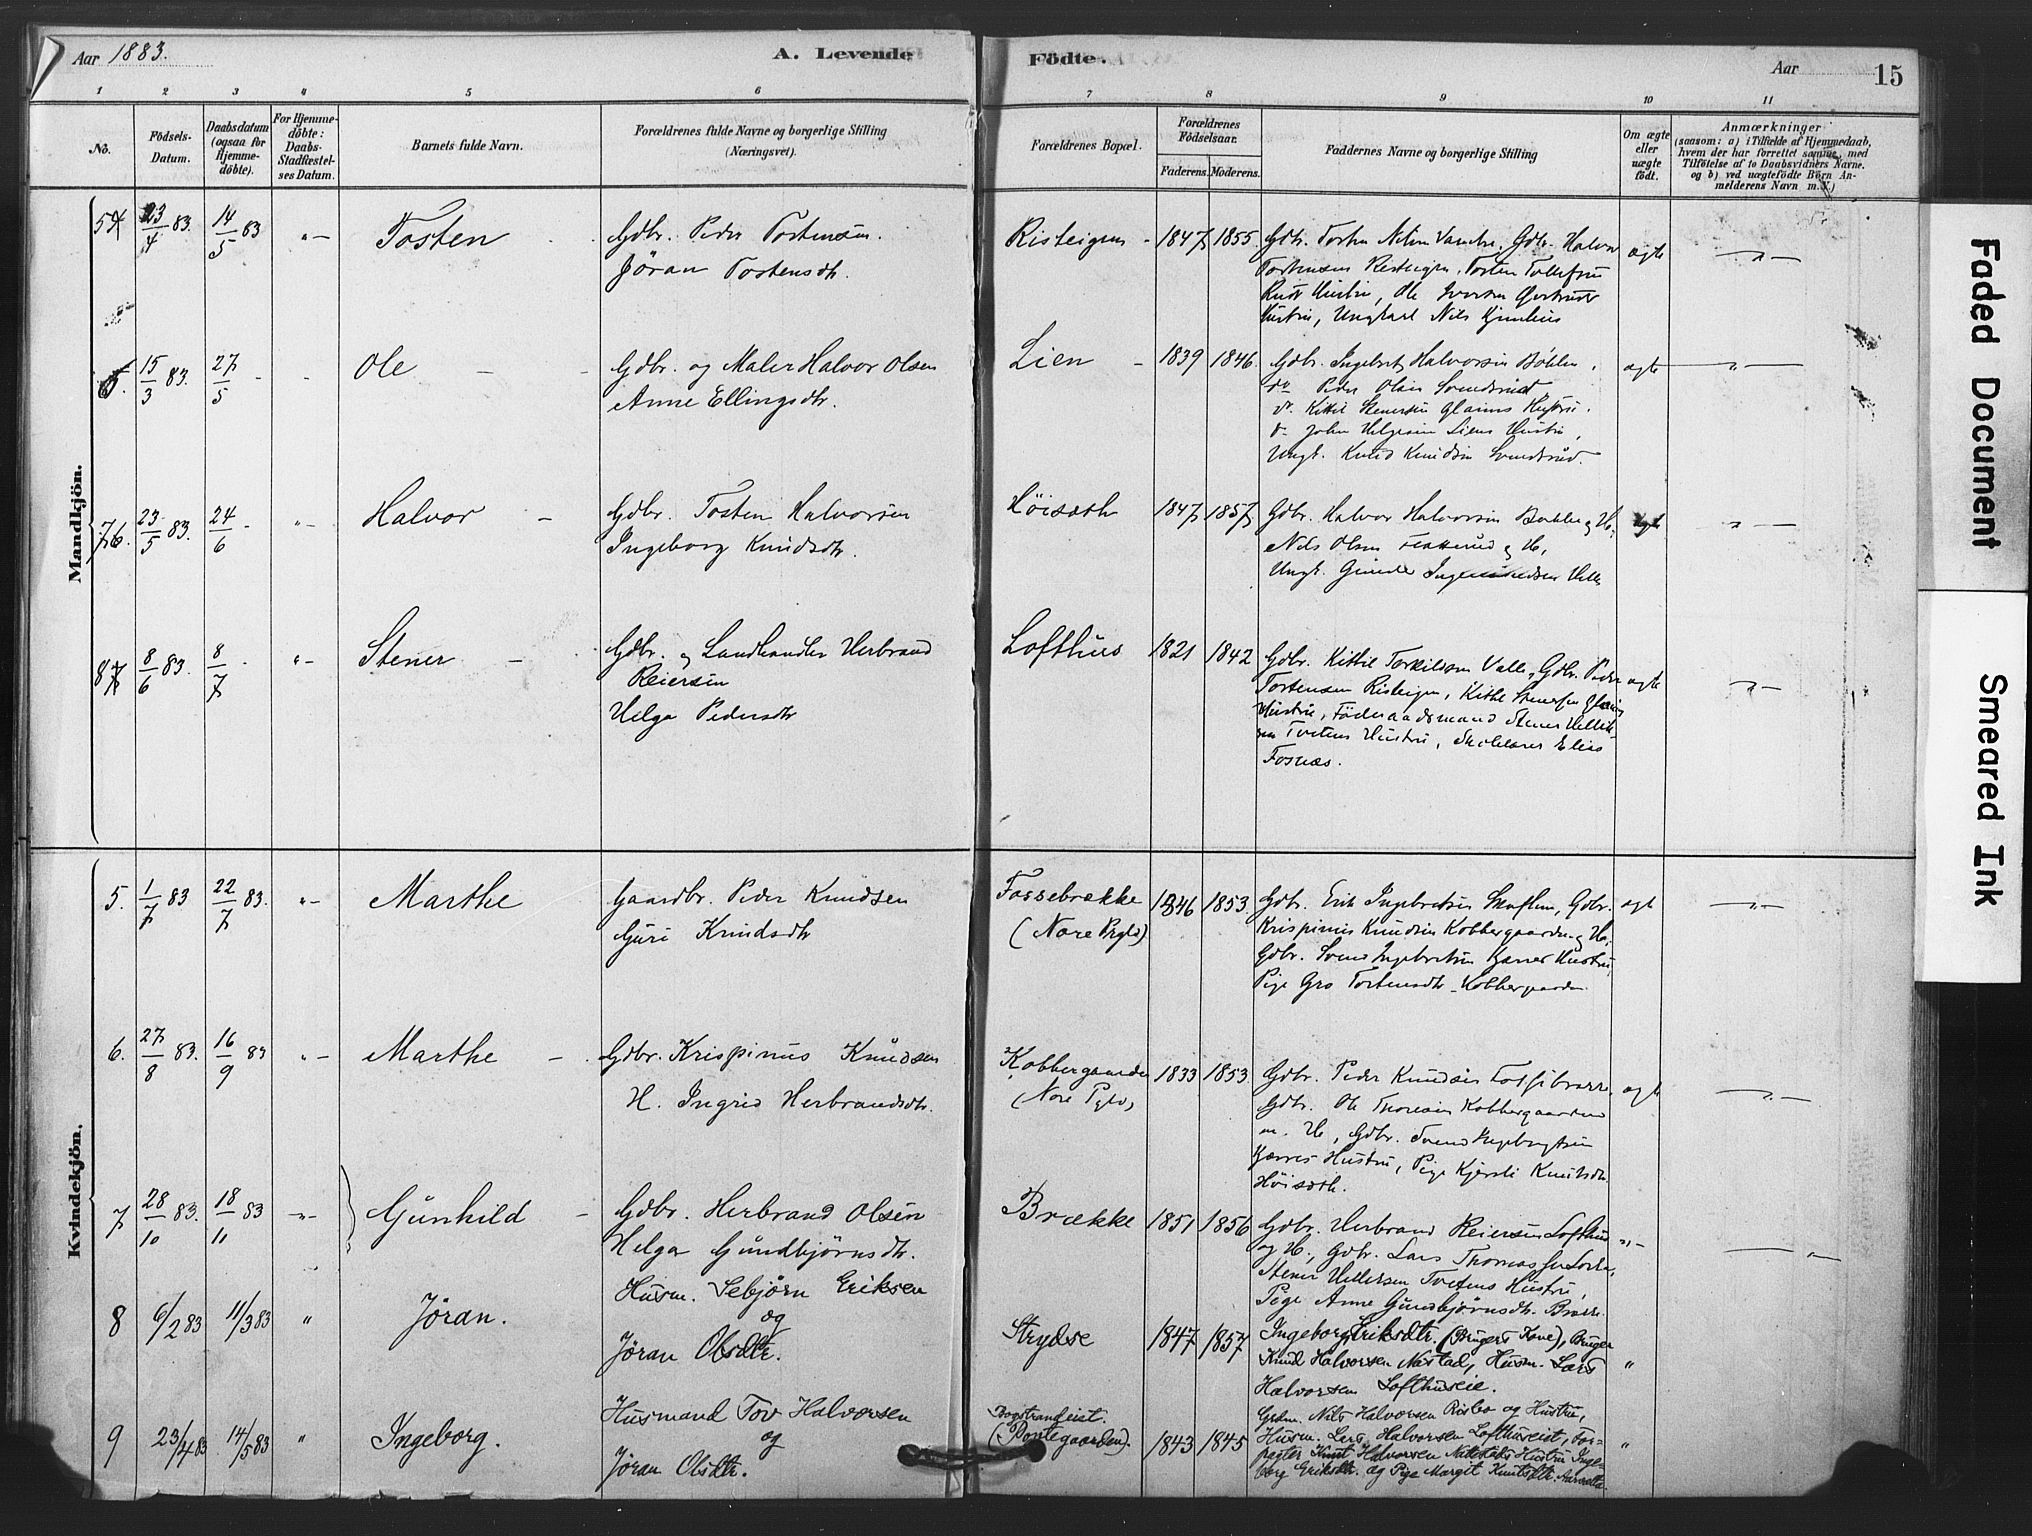 Aar 1883.
A. Levende
Födte.
Aar
15
1 2 3 4 5 6 7 8 9 10 11
No.
Födsels-
Datum.
Daabsdatum
(ogsaa for
Hjemme-
døbte).
For Hjemme-
døbte:
Daabs-
Stadfæstel-
ses Datum.
Barnets fulde Navn.
Forældrenes fulde Navne og borgerlige Stilling
(Næringsvei).
Forældrenes Bopæl.
Forældrenes
Födselsaar.
Faderens. Moderens.
Faddernes Navne og borgerlige Stilling
Om ægte
eller
uægte
födt.
Anmærkninger
(saasom: a) i Tilfælde af Hjemmedaab,
hvem der har forrettet samme, med
Tilföielse af to Daabsvidners Navne,
og b) ved uægtefödte Börn An-
melderens Navn m. V.)
Mandkjön.
5 23/4 83. 14/5 83 "— Tosten
Gdbr. Peder Tostensen.
Jöran Tostensdtr.
Risteigen - 1847 1855
Gdbr. Tosten Nilsen Gdbr. Halvor
Tostensen Risteigen, Tosten Tollefsen
Hustru, Ole Iversen
Hustru, Ungkarl Nils
ægte —"—
6. 15/3 83. 27/5 - - Ole
Gdbr. og Maler Halvor Olsen
Anne Ellingsdtr.
Lien - 1839 1846.
Gdbr. Ingebret Halvorsen
do Peder Olsen Svendsrud
do Kittil Stenersen Glaims Hustru.
do John Helgesen Liens Hustru,
Ungk. Knud Knudsen Svendsrud.
ægte —"—
7 23/5 83. 24/6 - "— Halvor —
Gdbr. Tosten Halvorsen
Ingeborg Knudsdtr.
Höisæth 1847 1857
Gdbr. Halvor Halvorsen og H.,
Nils Olsen og H,
Ungk. Gunder
ægte —"—
8 8/6 83. 8/7 - "— Stener —
Gdbr. og Landhandler Herbrand
Reiersen
Helga Pedersdtr
Lofthus 1821 1842
Gdbr. Kittil Torkilsen Valle, Gdbr. Peder
Tostensen Risteigen, Kittil Stenersen Glaims
Hustru, Föderaadsmand Stener Helleik-
sen Tvetens Hustru, Skolelærer Elias
Fosnæs.
ægte —"—
Kvindekjön.
5. 1/7 83 22/7 83. "— Marthe
Gaardbr. Peder Knudsen
Guri Knudsdtr
Fossebrække
(Nore Prgld)
1846 1853
Gdbr. Erik Ingebretsen Skaflem, Gdbr.
Krispinus Knudsen Kobbergaarden og H.,
Gdbr. Svend Ingebretsen Hustru,
Pige Gro Tostensdtr. Kobbergaarden
ægt —"—
6. 27/8 83. 16/9 83 "— Marthe —
Gdbr. Krispinus Knudsen
H. Ingrid Herbrandsdtr.
Kobbergaarden
(Nore Pgld)
1833 1853
Gdbr. Peder Knudsen Fossebrække
Gdbr. Ole Thoresen Kobbergaarden
m. H, Gdbr. Svend Ingebretsen
Hustru, Pige Kjersti Knudsdtr.
Höisæth.
ægte —"—
7 28/10 83. 18/11 83 "— Gunhild —
Gdbr. Herbrand Olsen
Helga Gundbjörnsdtr.
Brække 1851 1856
Gdbr. Herbrand Reiersen Lofthus
og H., Gdbr. Lars Thomassen
Stener Helleiksen Tvetens Hustru,
Pige Anne Gundbjörnsdtr. Brække.
"— —"—
8 6/2 83 11/3 83 " Jöran.
Husm. Sebjörn Eriksen
og
Jöran Olsdtr.
Strydse 1847 1857
Ingeborg Eriksdtr. (Brugers Kone), Bruger
Knud Halvorsen Næstad, Husm. Lars
Halvorsen Lofthuseie.
"
9 23/4 83 14/5 83 " Ingeborg.
Husmand Tov Halvorsen
og
Jöran Olsdtr.
(Pontegaarden). 1843 1845
Grdm. Nils Halvorsen Risbo og Hustru,
Husm. Lars Halvorsen Lofthuseiet, For-
pagter Knut Halvorsen Hustru Inge-
borg Eriksdtr. og Pige Margit Knutsdtr.
"
Faded Document
Smeared Ink